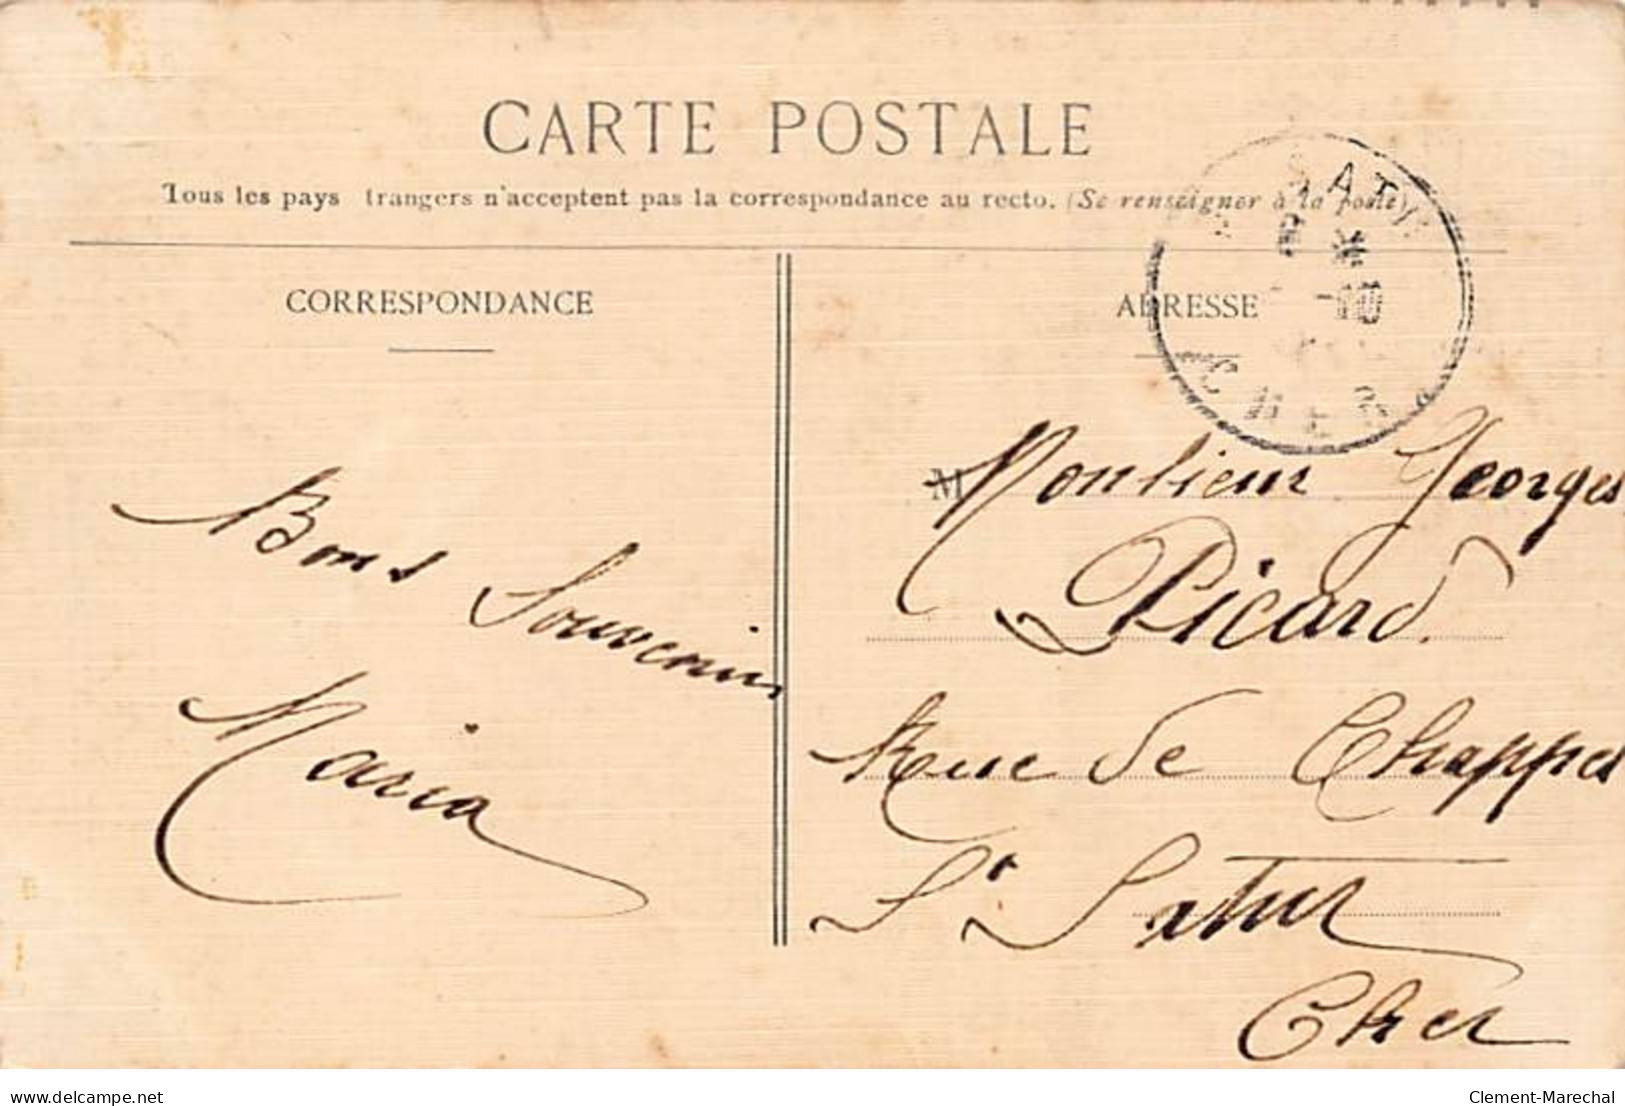 CARTE POSTALE
Tous les pays trangers n'acceptent pas la correspondance au recto. (Se renseigner à la poste)
CORRESPONDANCE
ADRESSE
CHER
Bons Souvenirs
Maria
M
Monsieur Georges
Picard.
Rue de Chappes
St Satur
Cher
delcampe.net
Clement-Marechal